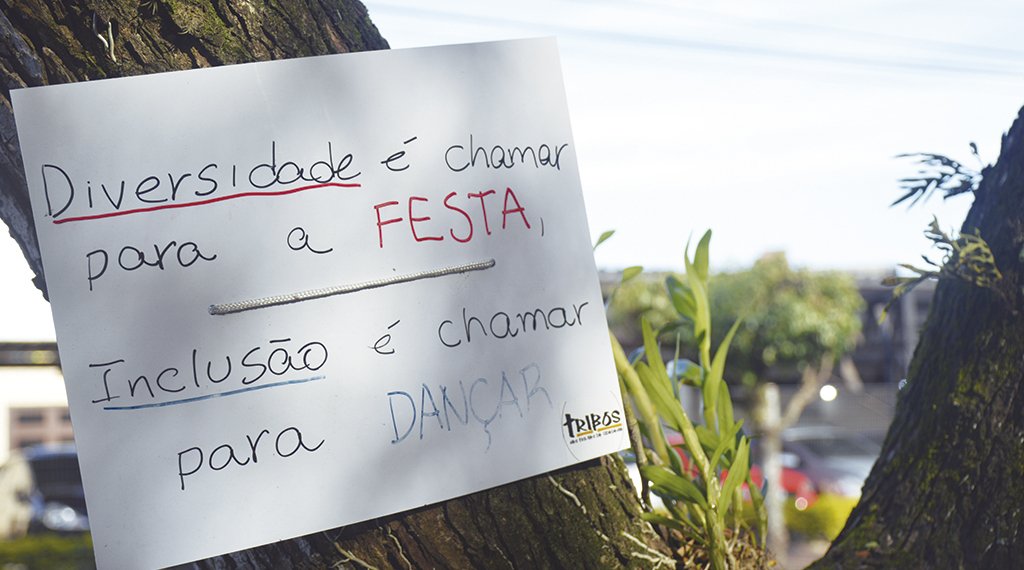 Diversidade é chamar
para a FESTA,
Inclusão é chamar
para DANÇAR
tRIBOS